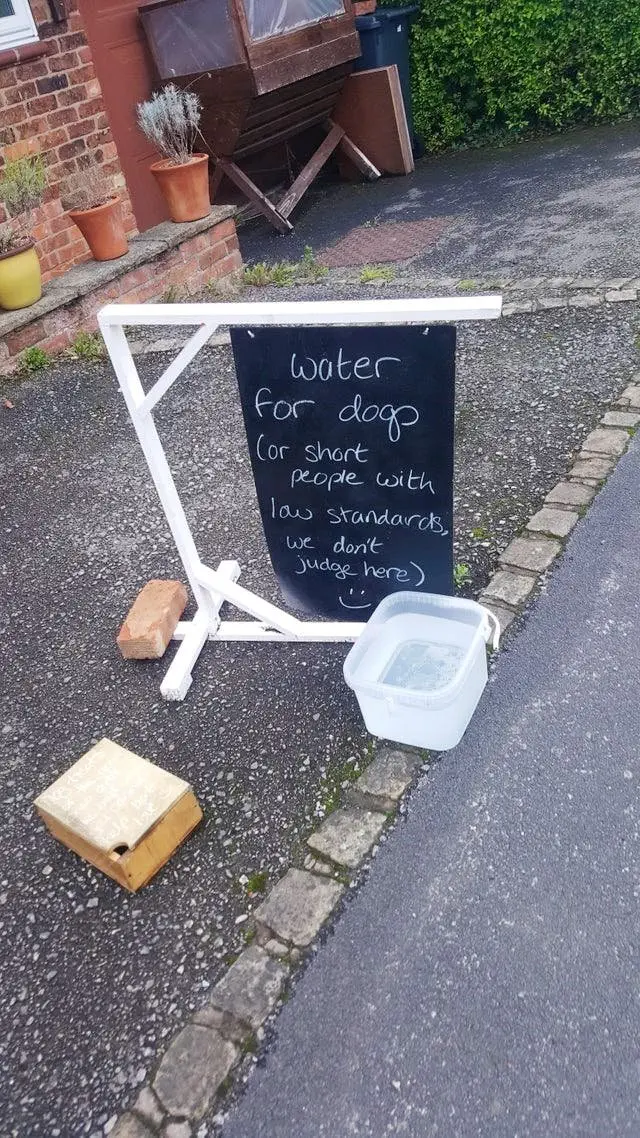 water
for dogs
(or short
people with
low standards,
we don't
judge here)